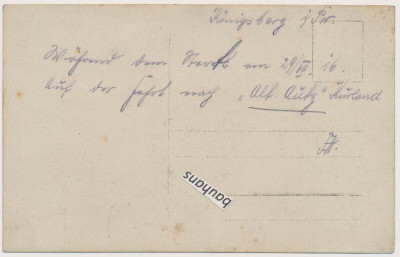 Königsberg i/Pr.
Während dem am 29/VII. 16.
Auf der Fahrt nach „Alt. Autz" Kurland
bauhans